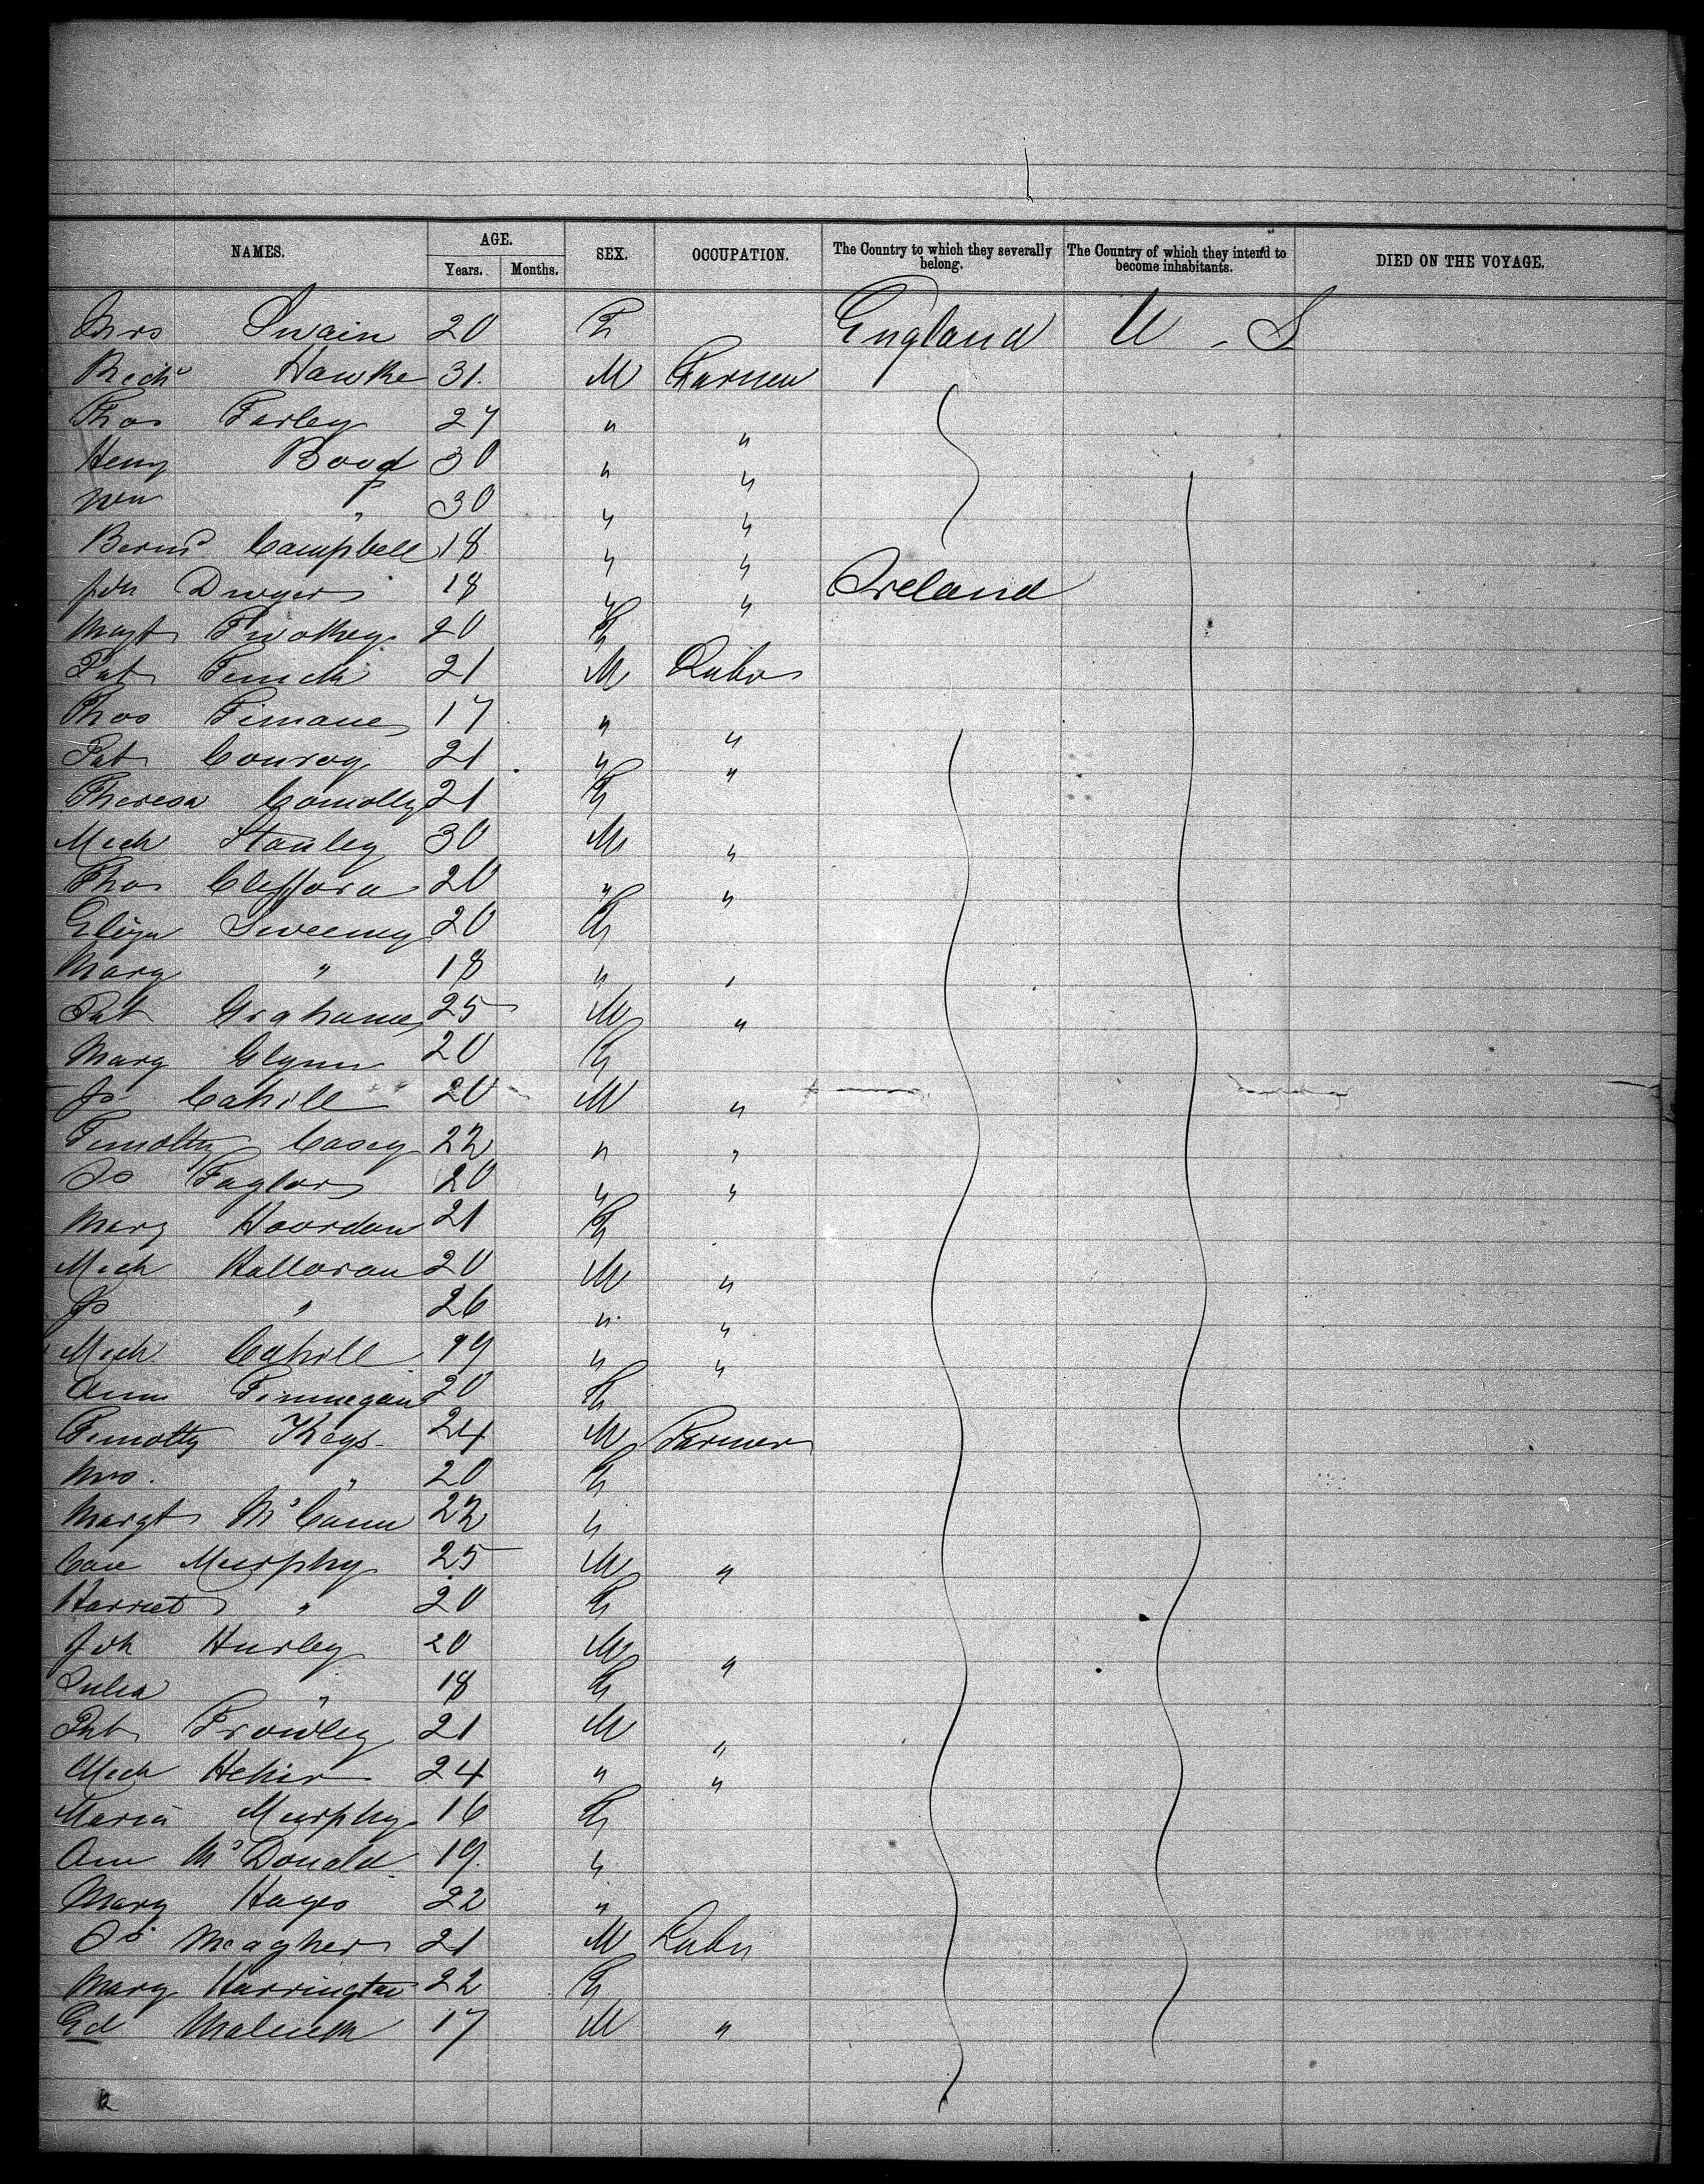 NAMES. AGE. Years. Months. SEX. OCCUPATION. The Country to which they severally belong. The Country of which they intend to become inhabitants. DIED ON THE VOYAGE.
Mrs Swain 20 F England U. S
Richd Hawke 31. M Farmer
Thos Farley 27 " "
Henry Bood 30 " "
Wm " 30 " "
Bernd Campbell 18 " "
Joh Dwyer 18 " " Ireland
Magt Twohey 20 F
Pat 21 M Labr
Thos 17 " "
Pat Conroy 21 " "
Theresa Connolly 21 F
Mich Stanley 30 M "
Thos Clifford 20 " "
Eliza Sweeney 20 F
Mary " 18 " "
Pat Grahame 25 M "
Mary Glynn 20 F
Jo Cahill 20 M "
Timothy Casey 22 " "
Jo Taylor 20 " "
Mary 21 F
Mich Halloran 20 M "
Jo " 26 " "
Mich Cahill 19 " "
Ann Finnegan 20 F
Timothy Keys 24 M Farmer
Mrs. " 20 F
Margt McCann 22 "
Con Murphy 25 M "
Harriet " 20 F
Joh Hurley 20 M "
Julia " 18 F
Pat 21 M "
Mich Hehir 24 " "
Maria Murphy 16 F
Ann McDonald 19. "
Mary Hayes 22 "
Jo Meagher 21 M Labr
Mary Harrington 22 F
Ed 17 M "